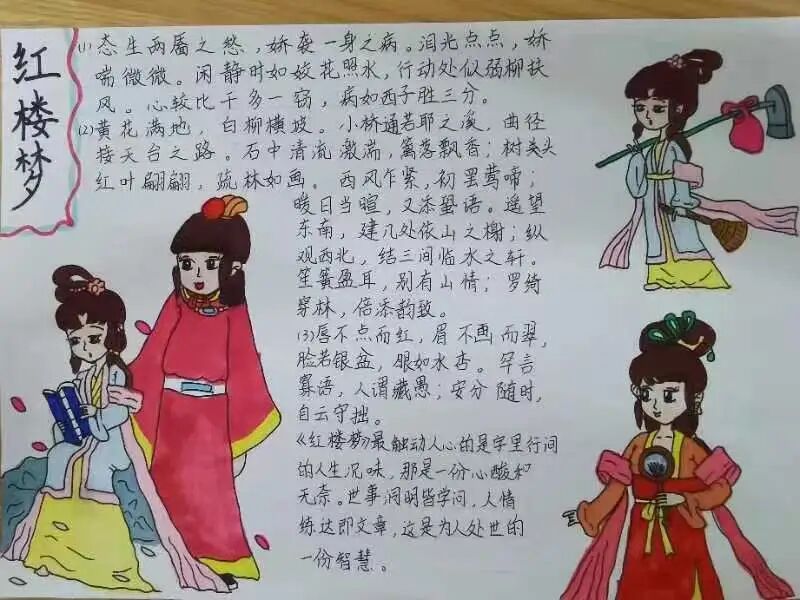 红楼梦
(1)态生两靥之愁,娇袭一身之病。泪光点点,娇
喘微微。闲静时如姣花照水,行动处似弱柳扶
风。心较比干多一窃,病如西子胜三分。
(2)黄花满地,白柳横坡。小桥通若耶之溪,曲径
接天台之路。石中清流激湍,篱落飘香;树头头
红叶翩翩,疏林如画。西风乍紧,初罢莺啼;
暖日当暄,又添蛩语。遥望
东南,建几处依山之榭;纵
观西北,结三间临水之轩。
笙簧盈耳,别有山情;罗绮
穿林,倍添韵致。
(3)唇不点而红,眉不画而翠,
脸若银盆,眼如水杏。罕言
寡语,人谓藏愚;安分随时,
自云守拙。
《红楼梦》最触动人心的是字里行间
的人生况味,那是一份心酸和
无奈。世事洞明皆学问,人情
练达即文章,这是为人处世的
一份智慧。